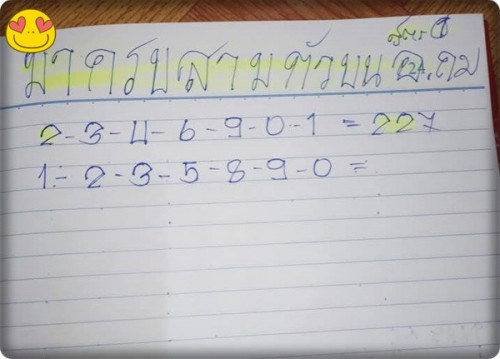 สูตร
มาครบสามตัวบน
2-3-4-6-9-0-1 = 227
1-2-3-5-8-9-0 =